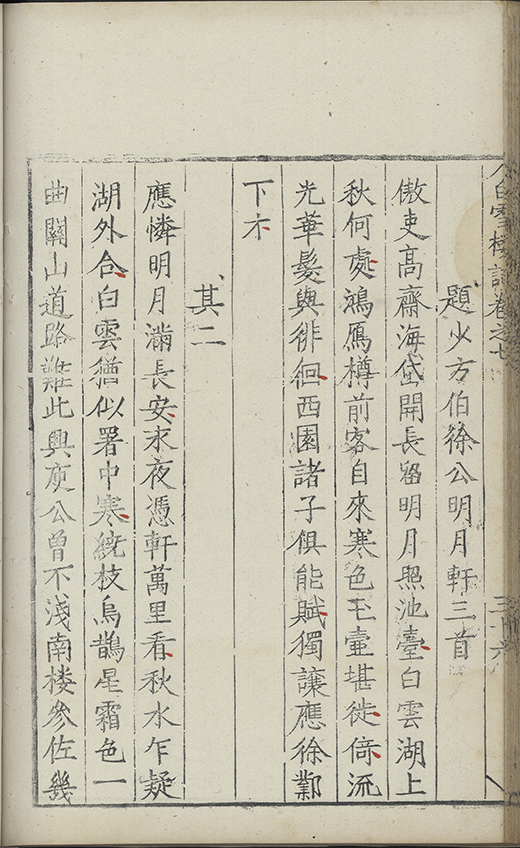 白雪樓詩卷之七
題少方伯徐公明月軒三首
傲吏高齋海岱開長留明月照池臺白雲湖上
秋何處鴻鴈樽前客自來寒色玉壷堪徙倚流
光華髮與徘徊西園諸子俱能賦獨讓應徐鄴
下才
其二
應憐明月滿長安永夜憑軒萬里看秋水乍疑
湖外合白雲猶似署中寒繞枝烏鵲星霜色一
曲關山道路難此興庾公曾不淺南楼參佐幾